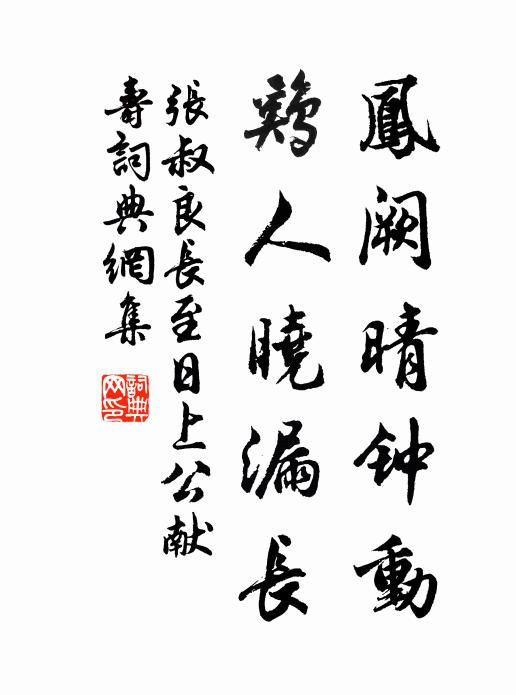 鳳闕晴钟動
鷄人曉漏長
張叔良長至日上公献
壽詞典網集
詞典
网印